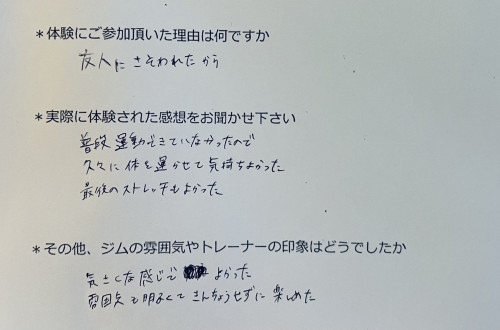 *体験にご参加頂いた理由は何ですか
友人にさそわれたから
*実際に体験された感想をお聞かせ下さい
普段運動できていなかったので
久々に体を運かせて気持ちよかった
最後のストレッチもよかった
*その他、ジムの雰囲気やトレーナーの印象はどうでしたか
気さくな感じでよかった
雰囲気も明るくてきんちょうせずに楽しめた